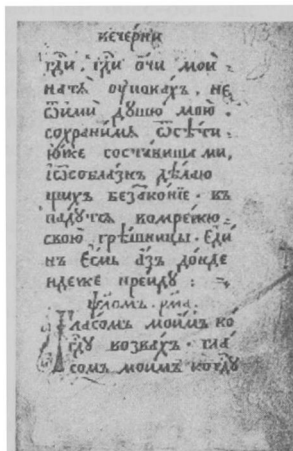 вечерни
гди, гди ѻчи мои
на тѧ оуповахъ, не
ѿими душю мою.
сохрани мѧ ѿ сѣти
юже составиша ми,
і ѿ соблазнъ дѣлаю
щихъ беззаконїе. въ
падутсѧ во мрежю
свою грѣшницы. еди
нъ есмь азъ донде
ндеже преиду :
ѱалом. рма.
Гласомъ моимъ ко
гду возвахъ. гла
сомъ моимъ ко гду